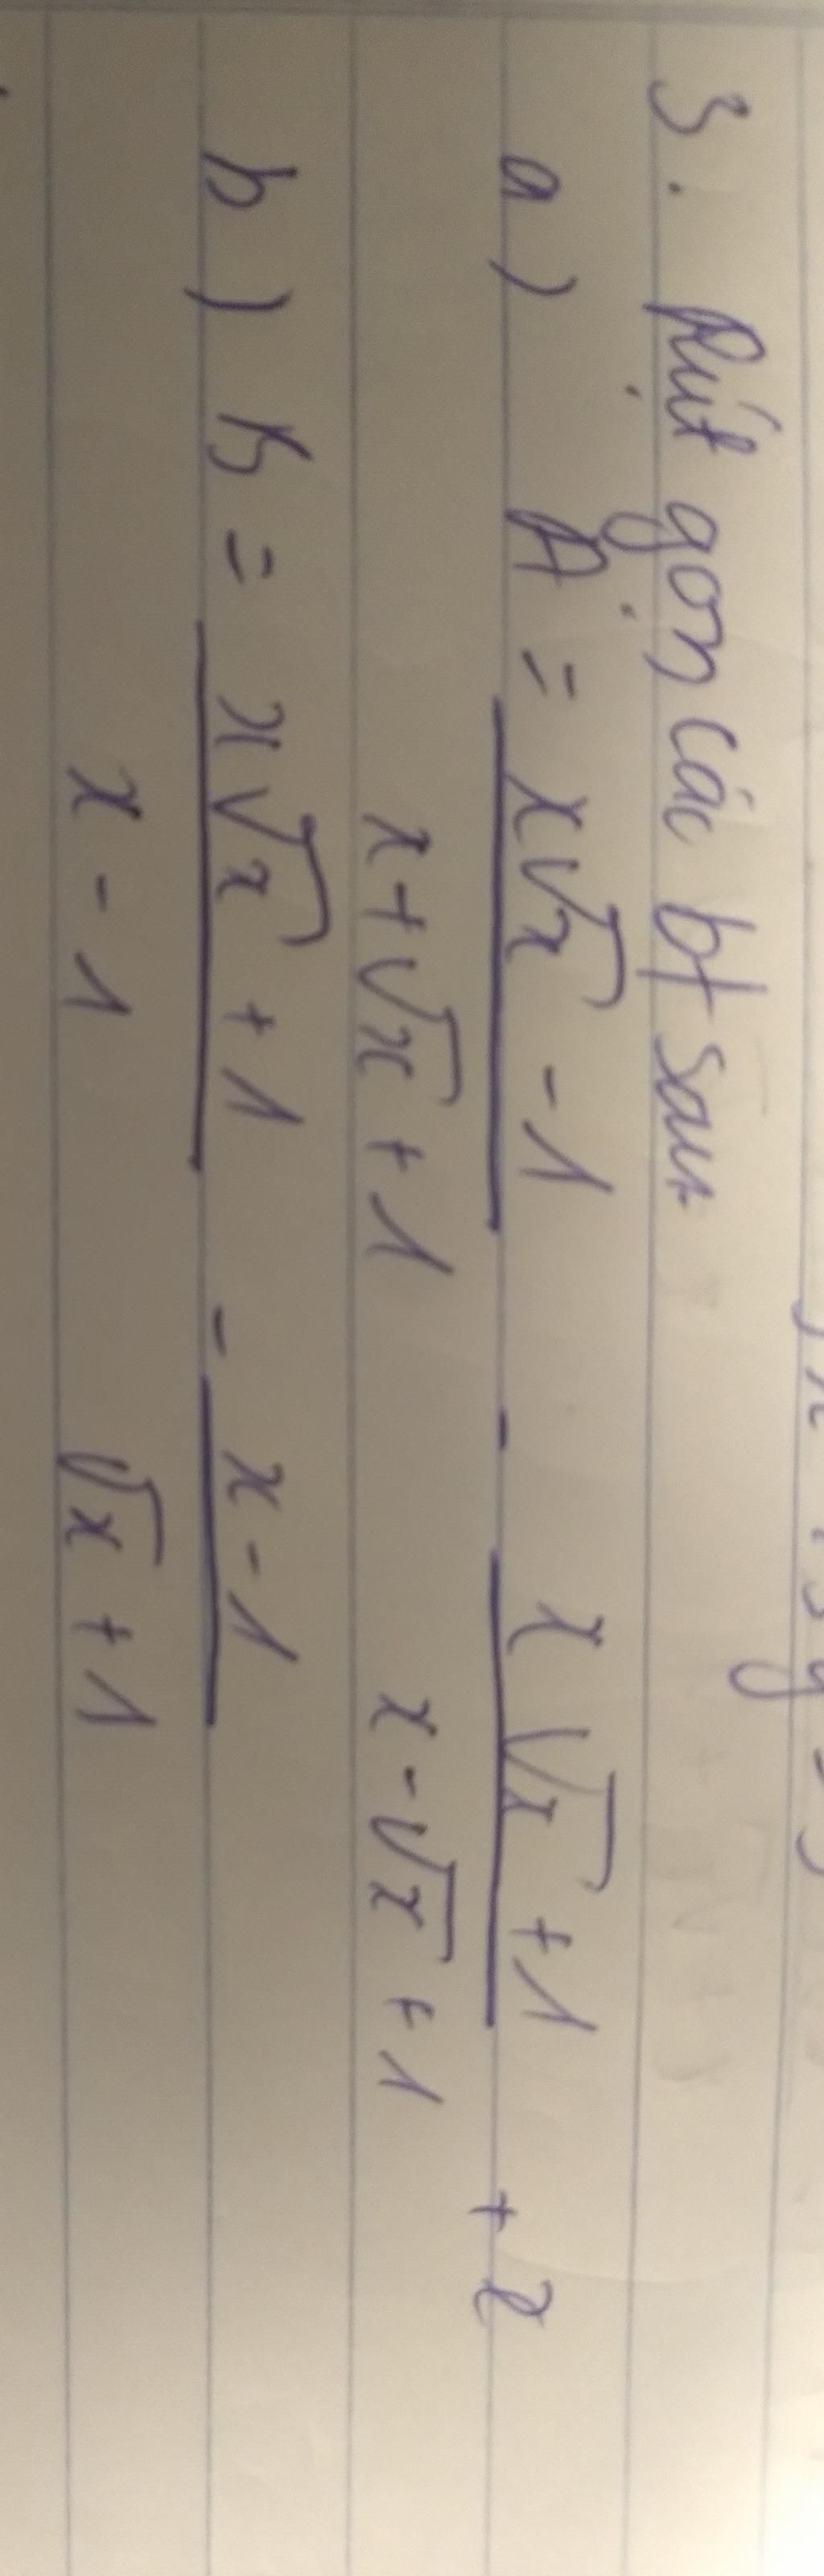 3. Rút gọn các bt sau
a) A = x√x - 1 / x + √x + 1 - x√x + 1 / x - √x + 1 + 2
b) B = x√x + 1 / x - 1 - x - 1 / √x + 1